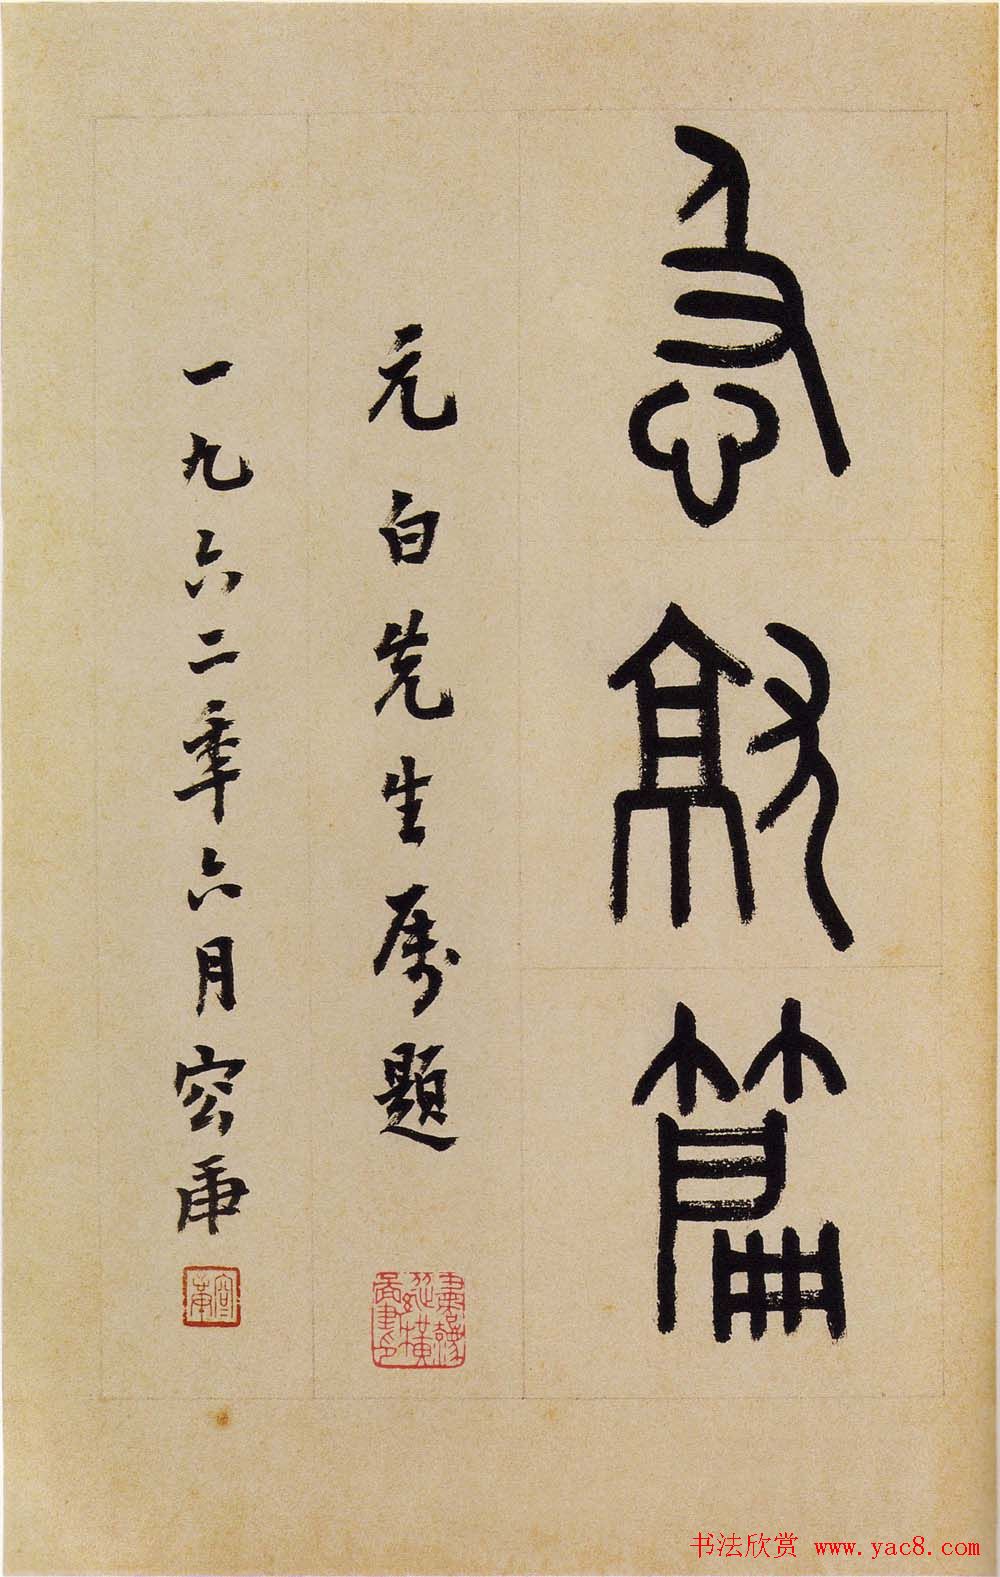 急就篇
元白先生属题
一九六二年六月容庚
容庚
书法欣赏 www.yac8.com